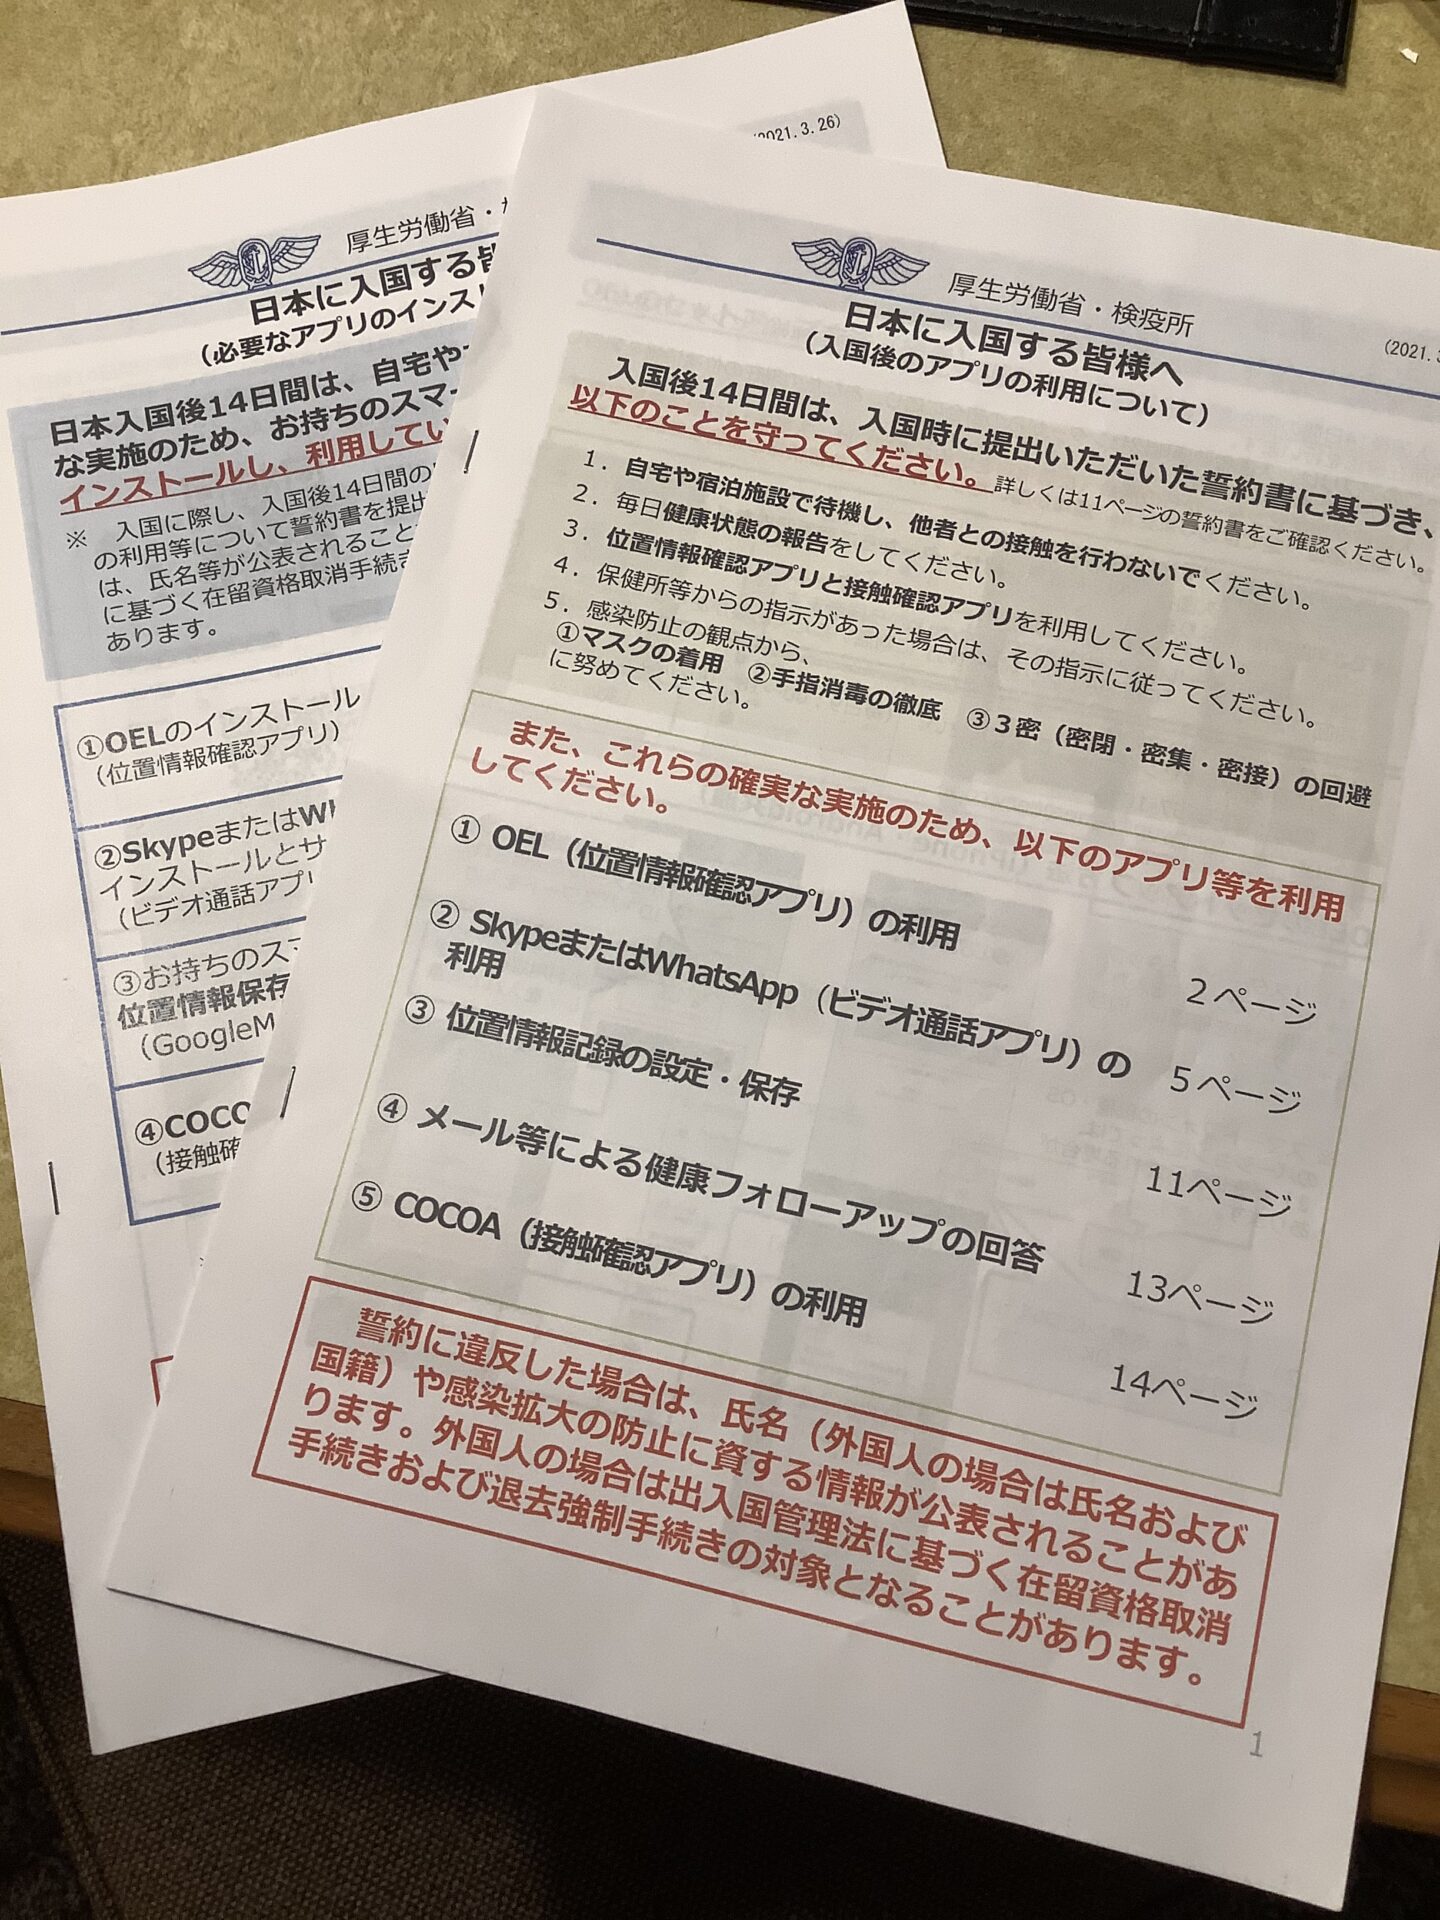 (2021.3.26)
厚生労働省・検
日本に入国する皆
（必要なアプリのインス
日本入国後14日間は、自宅や
な実施のため、お持ちのスマー
インストールし、利用してい
※　入国に際し、入国後14日間の
の利用等について誓約書を提出
は、氏名等が公表されること
に基づく在留資格取消手続き
あります。
①OELのインストール
（位置情報確認アプリ）
②SkypeまたはWh
インストールとサ
（ビデオ通話アプ
③お持ちのスマ
位置情報保存
（GoogleM
④COCO
（接触確
厚生労働省・検疫所
(2021.3
日本に入国する皆様へ
（入国後のアプリの利用について）
入国後14日間は、入国時に提出いただいた誓約書に基づき、
以下のことを守ってください。詳しくは11ページの誓約書をご確認ください。
1．自宅や宿泊施設で待機し、他者との接触を行わないでください。
2．毎日健康状態の報告をしてください。
3．位置情報確認アプリと接触確認アプリを利用してください。
4．保健所等からの指示があった場合は、その指示に従ってください。
5．感染防止の観点から、
①マスクの着用　②手指消毒の徹底　③３密（密閉・密集・密接）の回避
に努めてください。
また、これらの確実な実施のため、以下のアプリ等を利用
してください。
① OEL（位置情報確認アプリ）の利用 2ページ
② SkypeまたはWhatsApp（ビデオ通話アプリ）の
利用 5ページ
③ 位置情報記録の設定・保存 11ページ
④ メール等による健康フォローアップの回答 13ページ
⑤ COCOA（接触確認アプリ）の利用 14ページ
誓約に違反した場合は、氏名（外国人の場合は氏名および
国籍）や感染拡大の防止に資する情報が公表されることがあ
ります。外国人の場合は出入国管理法に基づく在留資格取消
手続きおよび退去強制手続きの対象となることがあります。
1